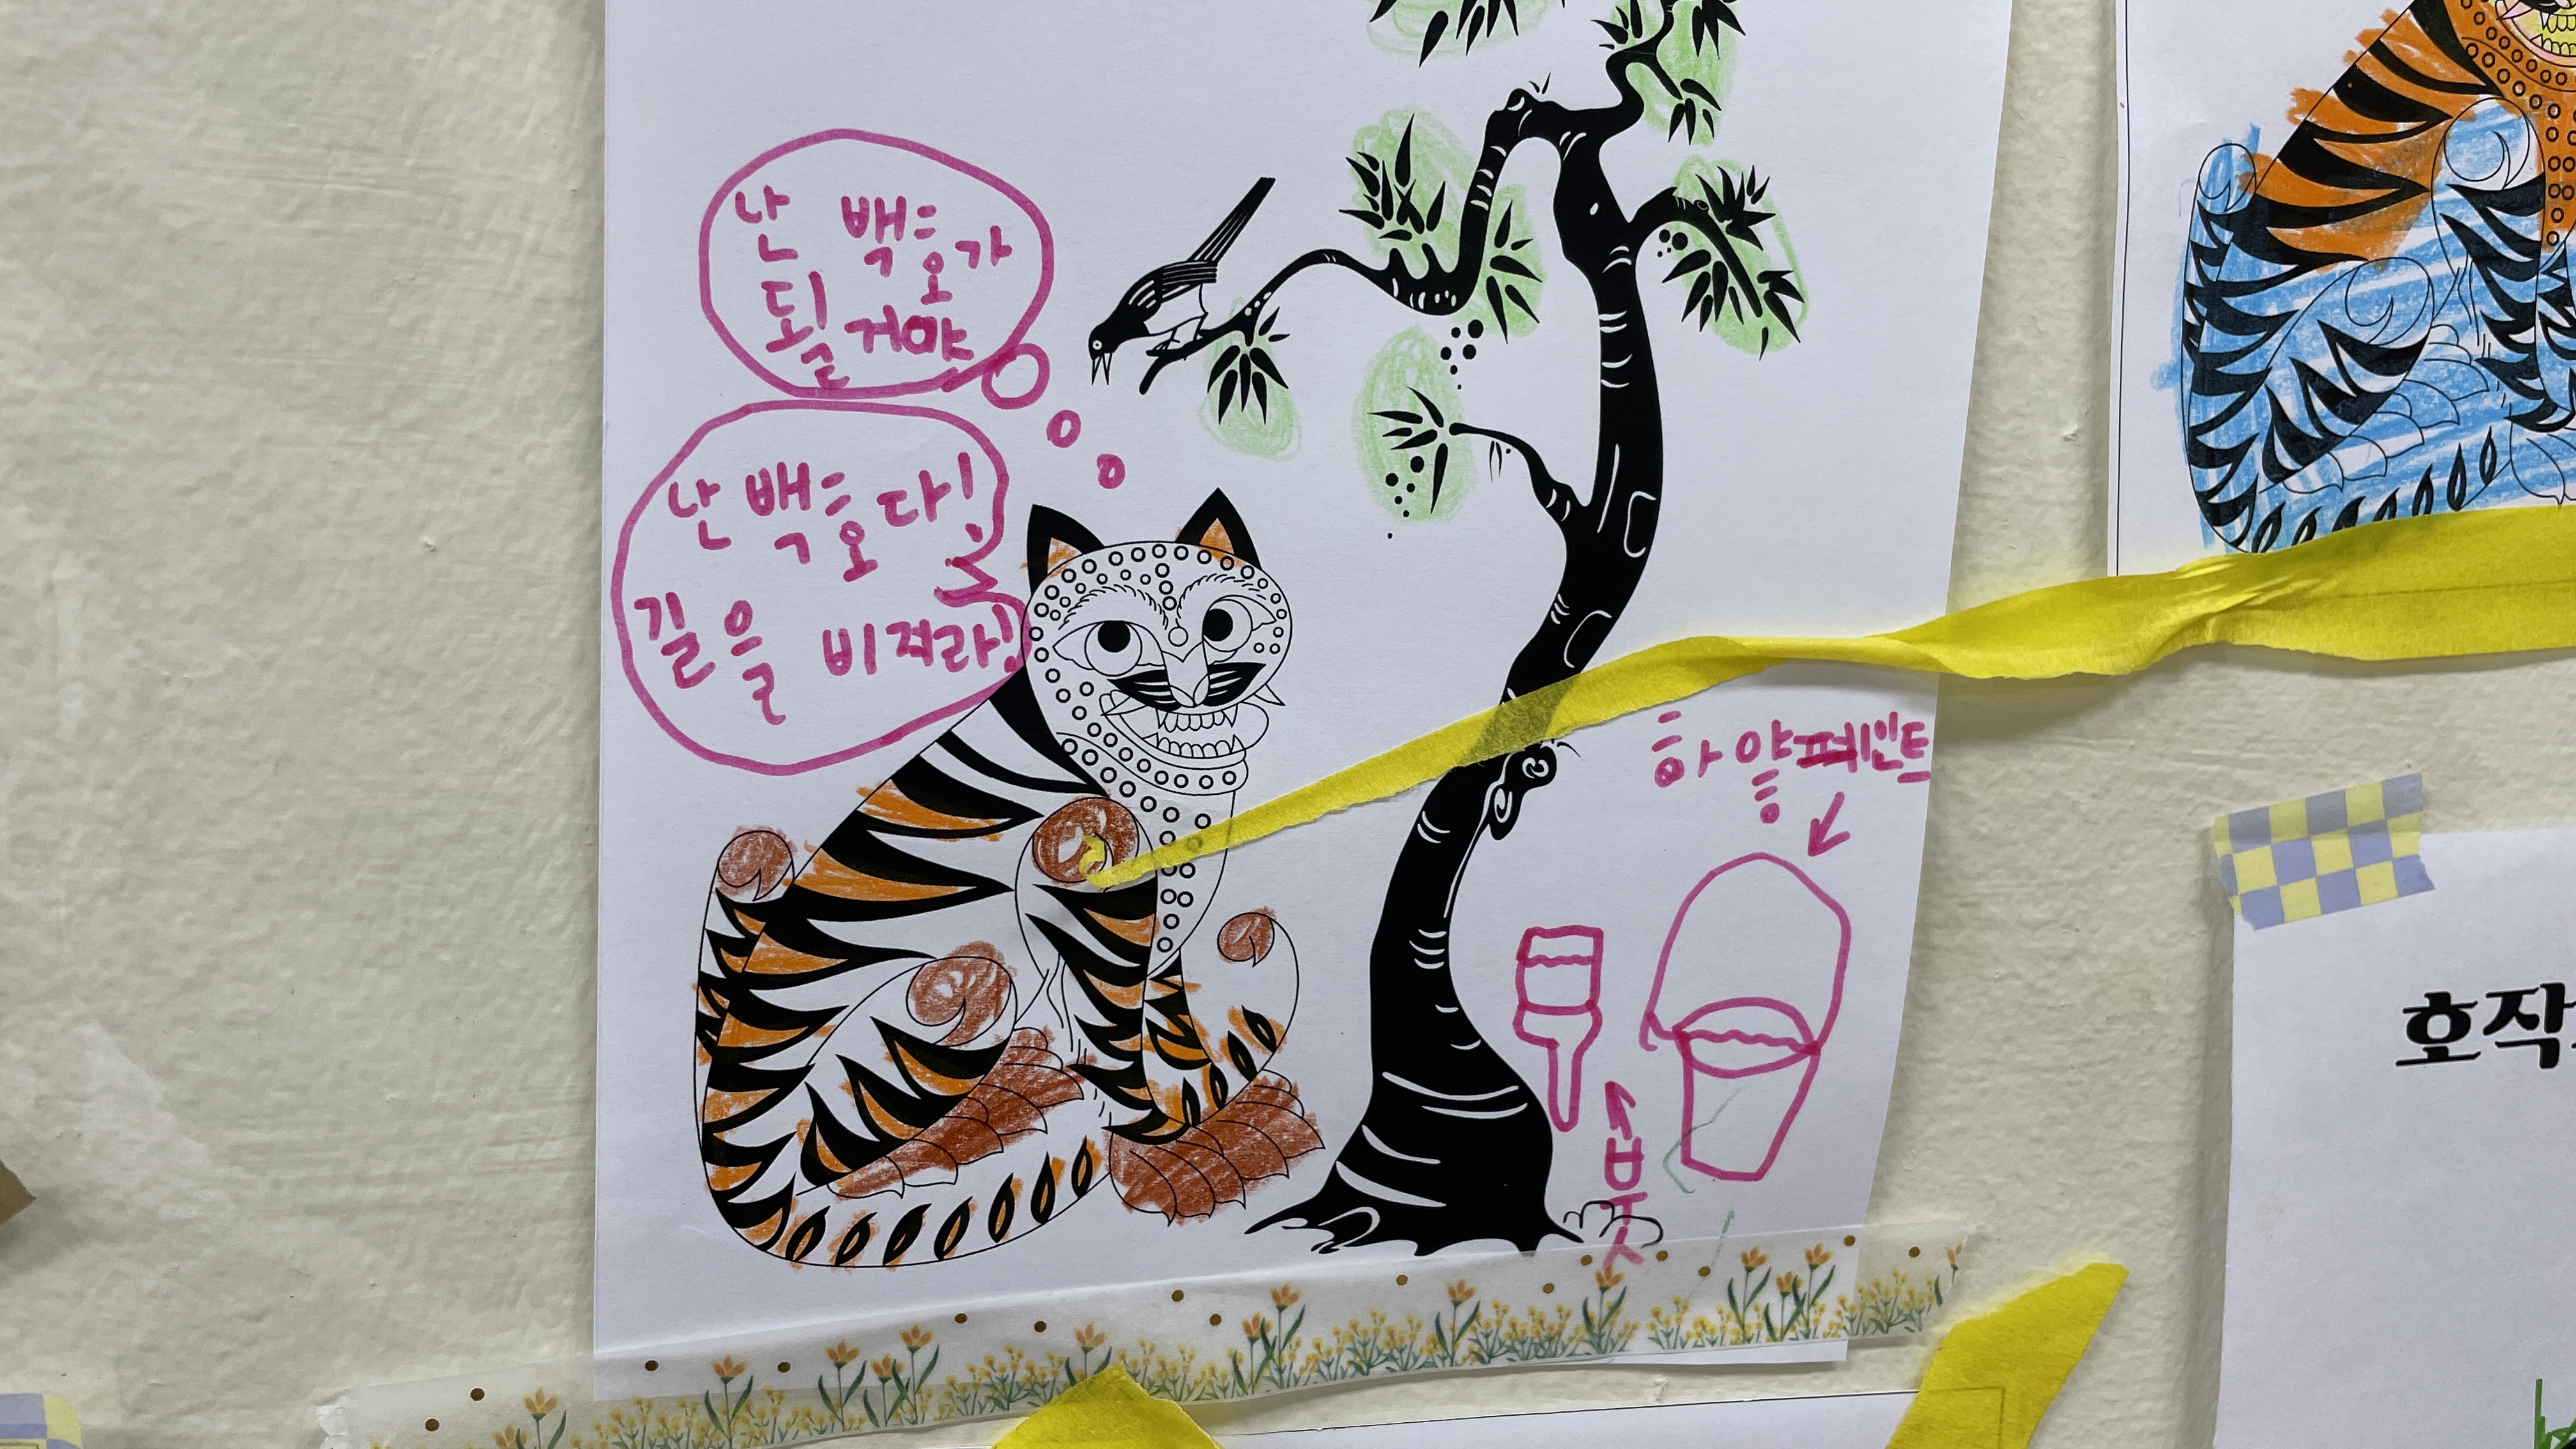 난 백호가
될 거야
난 백호다!
길을 비켜라!
하얀페인트
붓
호작